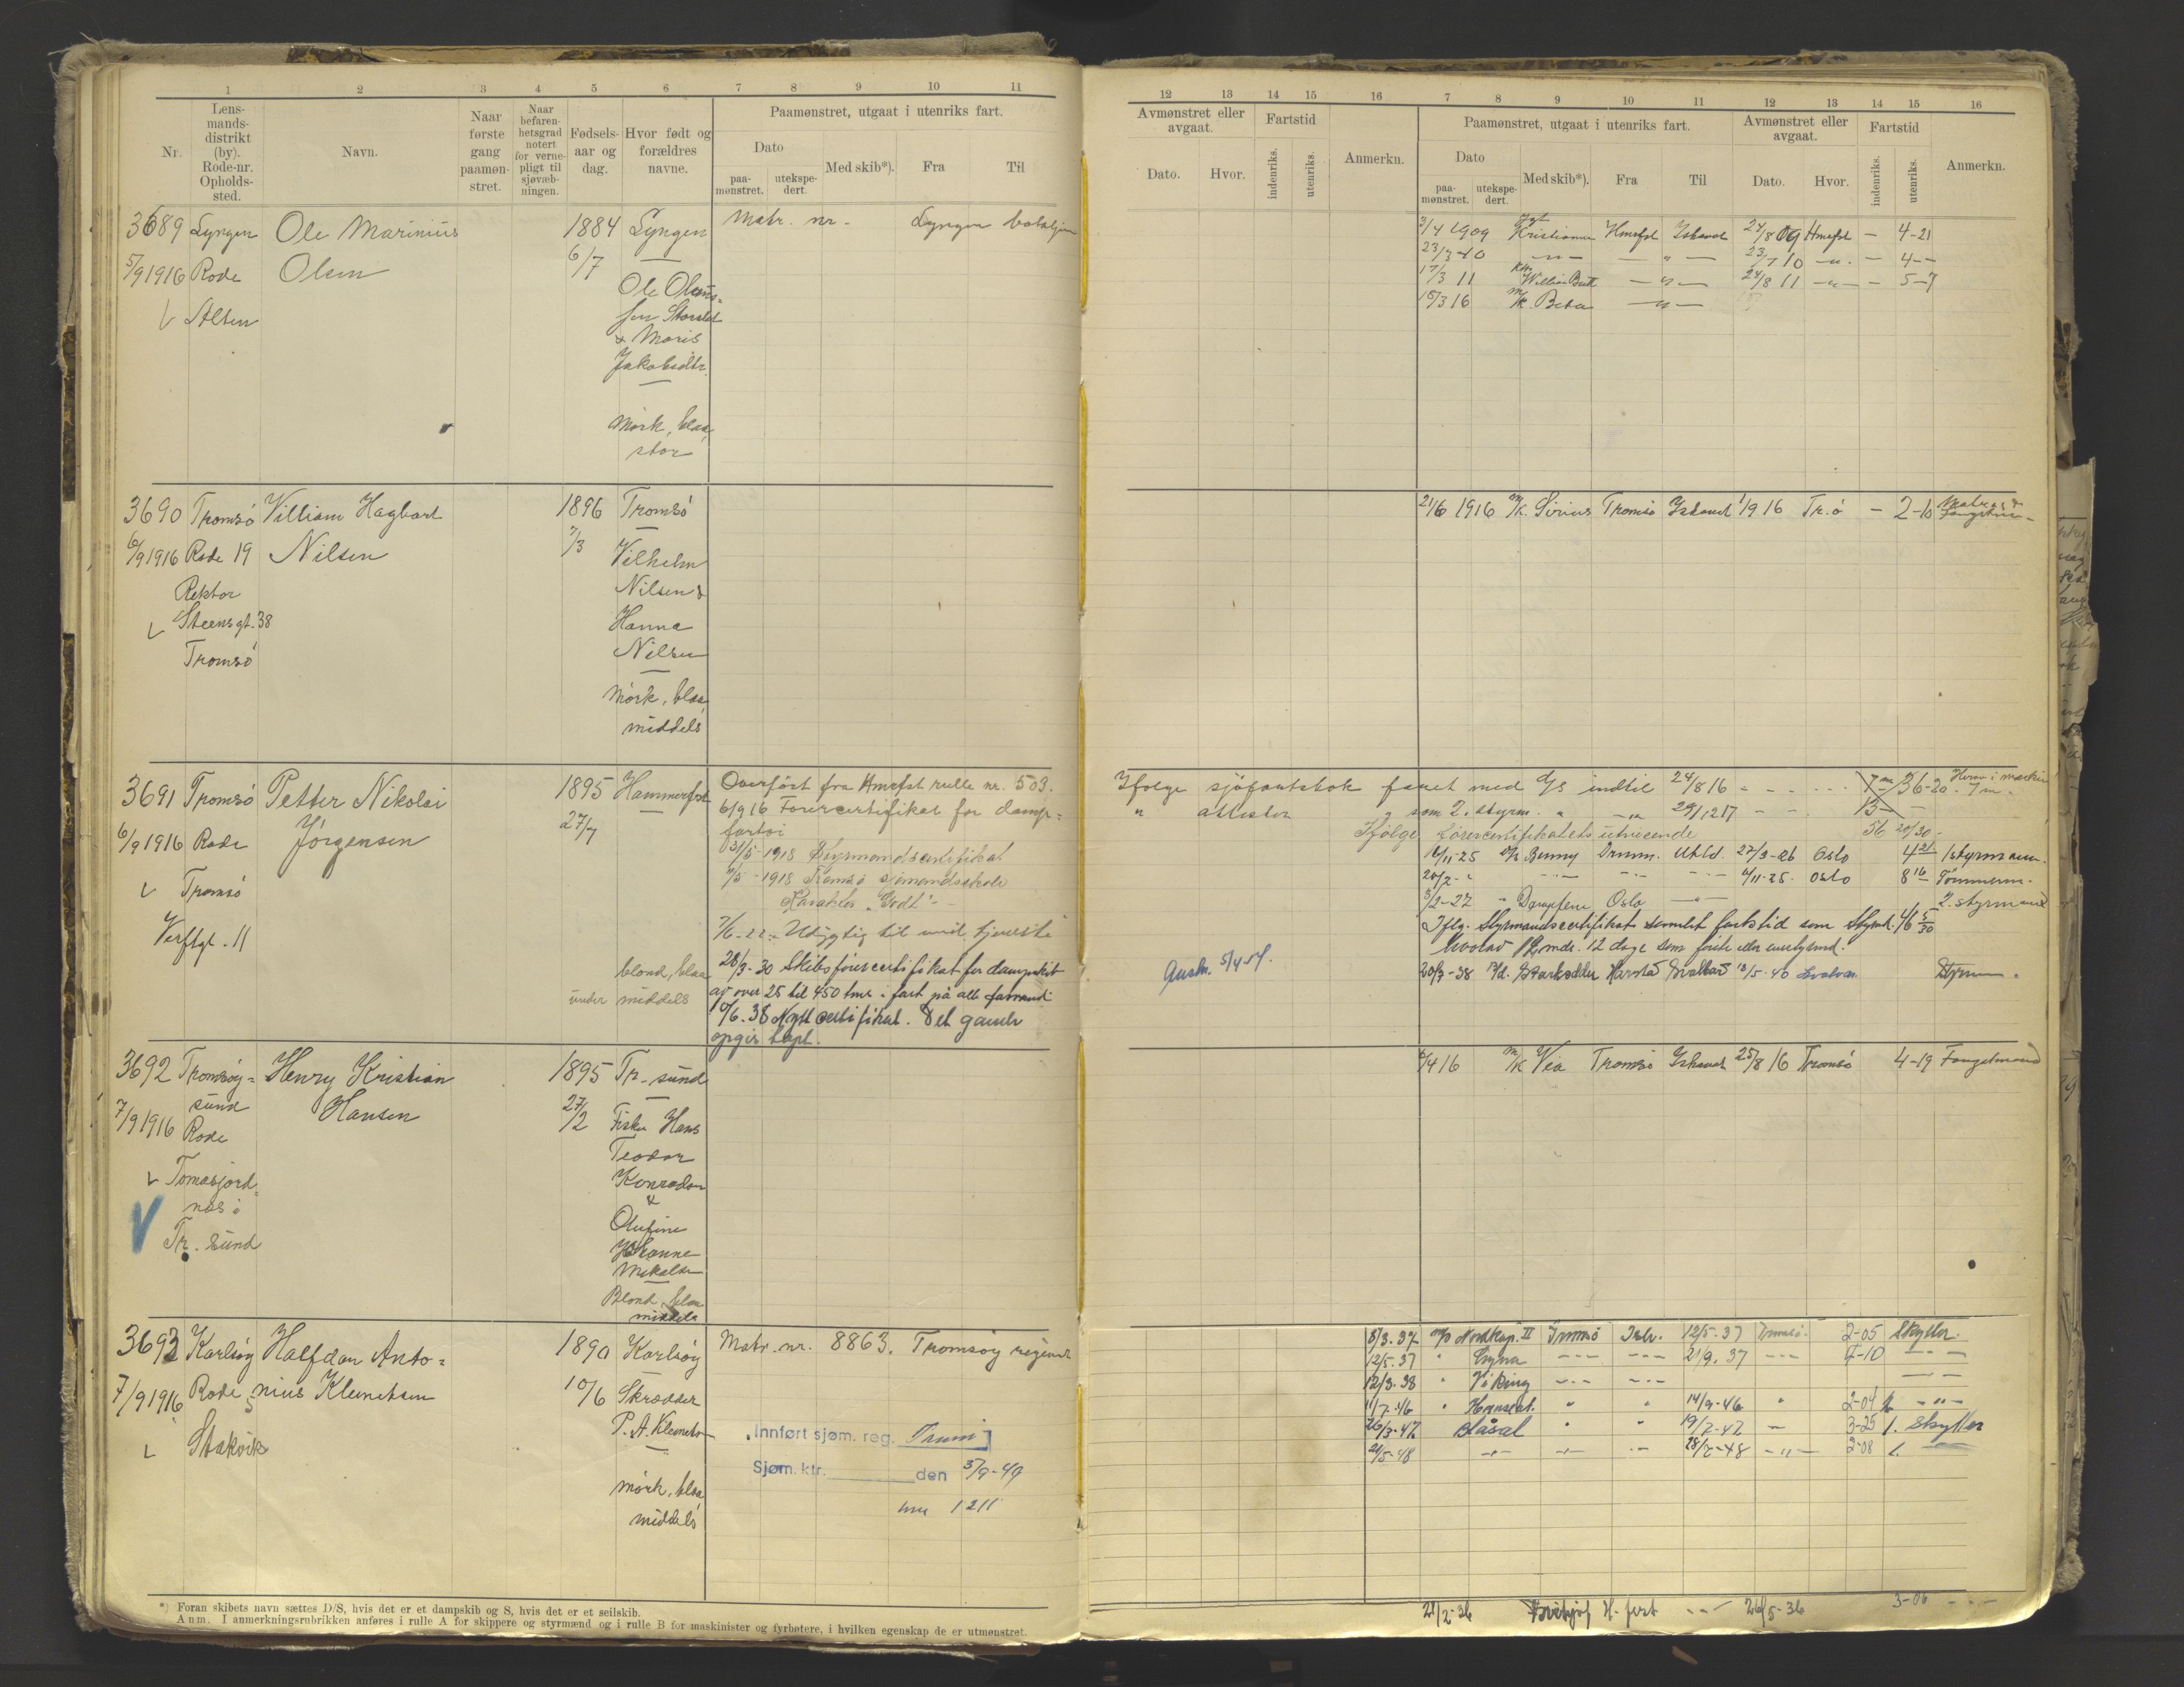 1 2 3 4 5 6 7 8 9 10 11
Nr.
Lens-
mands-
distrikt
(by).
Rode-nr.
Opholds-
sted.
Navn.
Naar
første
gang
paamøn-
stret.
Naar
befaren-
hetsgrad
notert
for verne-
pligt til
sjøvæb-
ningen.
Fødsels-
aar og
dag.
Hvor født og
forældres
navne.
Paamønstret, utgaat i utenriks fart.
Dato
paa-
mønstret.
utekspe-
dert.
Med skib*).
Fra
Til
3689 Lyngen Ole Marinius 1884 Lyngen Matr. nr. - Lyngen
5/9 1916 Rode Olsen 6/7
Ole
& Maris
Jakobsdtr.
mörk, blaa,
stor
3690 Tromsö William Hagbart 1896 Tromsö
6/9 1916 Rode 19 Nilsen 7/3 Vilhelm
Rektor Nilsen &
Steensgt. 38 Hanna
Tromsö Nilsen
mörk, blaa,
middels
3691 Tromsö Petter Nikolai 1895 Hammerfest Overført fra Hmfst rulle nr. 503.
6/9 1916 Rode Jörgensen 27/7 6/9 16 Förercertifikat for damp-
fartöi
31/5-1918 Styrmandscertifikat
Tromsö 7/5-1918 Tromsö sjömandsskole
Karakter "Godt" -
Verftgt. 11 7/6-22. Udygtig til mil. tjeneste
blond, blaa 28/3-30 Skibsförercertifikat for dampskib
under middels av over 25 til 450 tons i fart på alle farvand
10/6.38 Nytt certifikat. Det gamle
opgis tapt.
3692 Tromsöy- Henry Kristian 1895 Tr-sund
sund
7/9 1916 Rode Hansen 27/2 Fisker Hans
Teodor
Tomasjord Konradsen
næs i &
Tr. sund Olufine
Johanne
Mikalsen
Blond, blaa
middels
3693 Karlsöy Halfdan Anto- 1890 Karlsöy Matr. nr. 8863. Tromsöy
7/9 1916 Rode nius Klemetsen 10/6 Skrædder
P. A. Klemetsen
Stakvik
Innført sjøm. reg. Troms
Sjøm. ktr. den 3/9-49
nu 1211
mörk, blaa
middels
*) Foran skibets navn sættes D/S, hvis det er et dampskib og S, hvis det er et seilskib.
Anm. I anmerkningsrubrikken anføres i rulle A for skippere og styrmænd og i rulle B for maskinister og fyrbøtere, i hvilken egenskap de er utmønstret.
12 13 14 15 16 7 8 9 10 11 12 13 14 15 16
Avmønstret eller
avgaat.
Fartstid
Dato.
Hvor.
indenriks.
utenriks.
Anmerkn.
Paamønstret, utgaat i utenriks fart.
Dato
paa-
mønstret.
utekspe-
dert.
Med skib*).
Fra
Til
Avmønstret eller
avgaat.
Dato.
Hvor.
Fartstid
indenriks.
utenriks.
Anmerkn.
3/4 1909 Hmfst Ishavet 24/8 09 Hmfst - 4-21
23/3 10 - " - - " - 23/7 10 - " - - 4 - -
17/3 11 - " - 24/8 11 - " - - 5-7
15/3 16 m/k - " -
21/6 1916 m/k. Sirius Tromsö Ishavet 1/9 16 Tr.ö - 2-10 Matros &
Ifølge sjøfartsbok faret med d/s indtil 24/8 16 - - 7 m 36-20 Herav i maskin 7 m.
" attester " som 2. styrm. " 29/12 17 - - 13 -
Ifölge Förercertifikatets utvisende 56 20/30
D/s Benny Dram. Utld. 27/3-26 Oslo 4 21 1 styrmann.
20/2 - " - " - - " - - " - 4/11-25. Oslo 8 16 Tömmerm.
3/2-27 " Oslo - " - 2. styrmand
Iflg. Styrmandscertifikat samlet fartstid som Styrmd. 46 5/30
hvorav 12 mdr. 12 dage som förste eller enestyrmd.
5/4 57. 20/3-38 Starkodder Harstad Svalbard 13/5-40 Styrm.
6/4 16 m/k Vea Tromsö Ishavet 25/8 16 Tromsö 4-19 Fangstmand
8/3.37 m/s Nordkap. II Tromsö Ish. 12/5.37 Tromsö. 2-05 Skytter.
12/5.37 " - " - - " - 21/9.37 - " - 4-10 - " -
12/3.38 " Viking - " - - " - - " -
11/7.46 " " " 14/9-46 " 2-04 - " -
26/3-47 Blåsel " " 19/7-47 - 3-25 1. Skytter
21/5-48 - " - - " - - " - 28/7-48 - " - 2-08 1. -
21/2-36 H.fest - " - 26/5-36 3-06 - " -